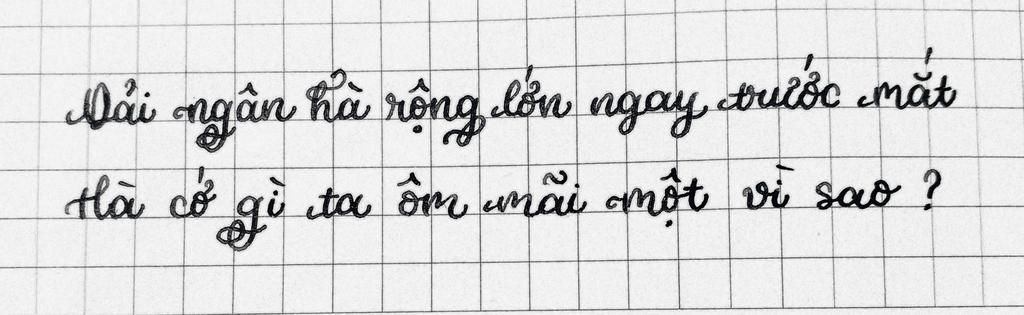 Dải ngân hà rộng lớn ngay trước mắt
Hà cớ gì ta ôm mãi một vì sao ?